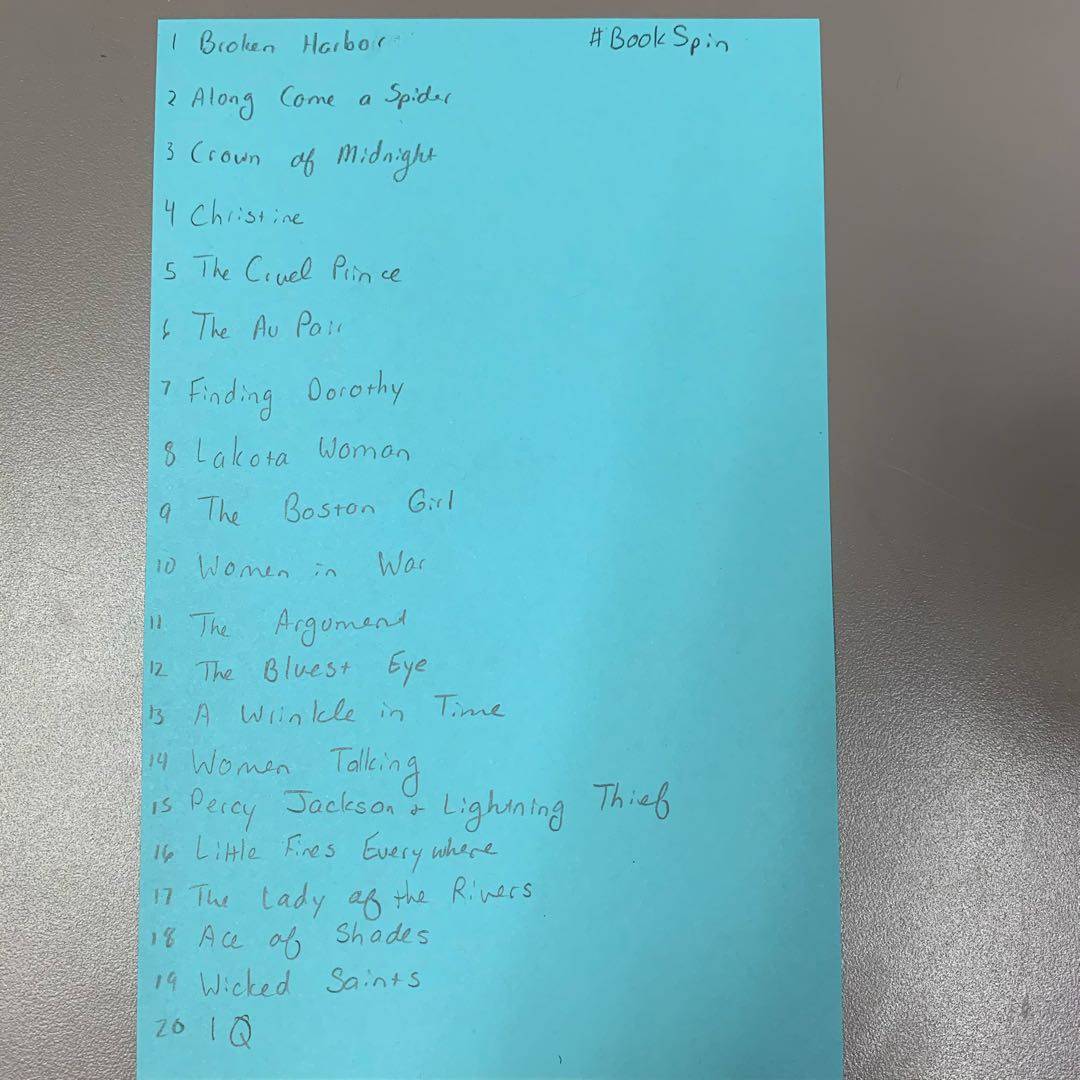 1 Broken Harbor #BookSpin
2 Along Come a Spider
3 Crown of Midnight
4 Christine
5 The Cruel Prince
6 The Au Pair
7 Finding Dorothy
8 Lakota Woman
9 The Boston Girl
10 Women in War
11 The Argument
12 The Bluest Eye
13 A Wrinkle in Time
14 Women Talking
15 Percy Jackson + Lightning Thief
16 Little Fires Everywhere
17 The Lady of the Rivers
18 Ace of Shades
19 Wicked Saints
20 IQ